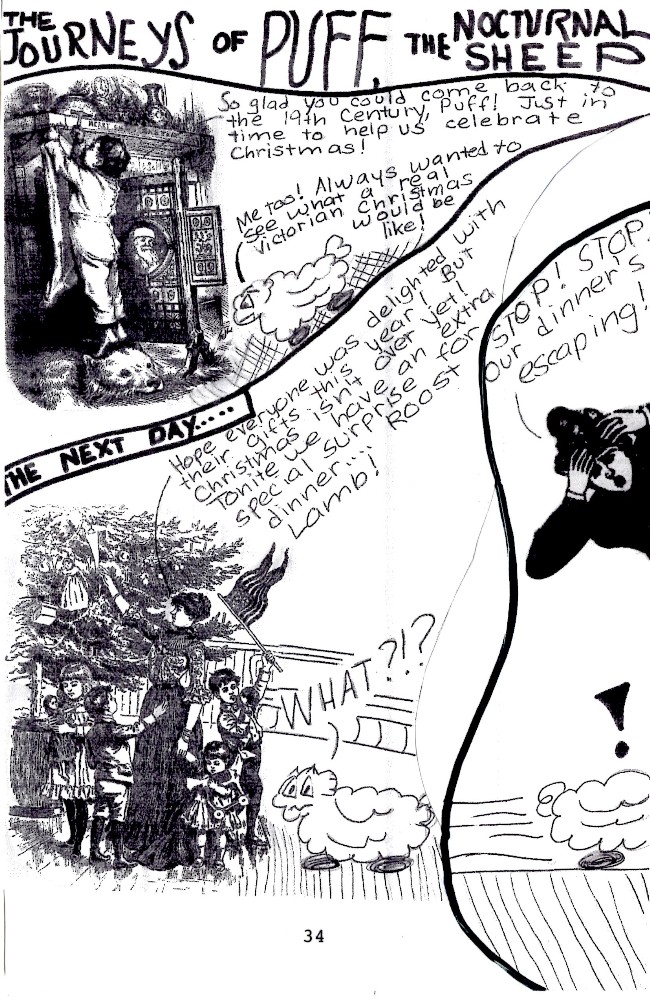 THE JOURNEYS OF PUFF, THE NOCTURNAL SHEEP
So glad you could come back to
the 19th Century, Puff! Just in
time to help us celebrate
Christmas!
Me too! Always wanted to
see what a real
Victorian Christmas
would be
like!
THE NEXT DAY.....
Hope everyone was delighted with
their gifts this year! But
Christmas isn't over yet!
Tonite we have an extra
special surprise for
dinner.... Roost
Lamb!
WHAT?!?
STOP! STOP!
Our dinner's
escaping!
!
34